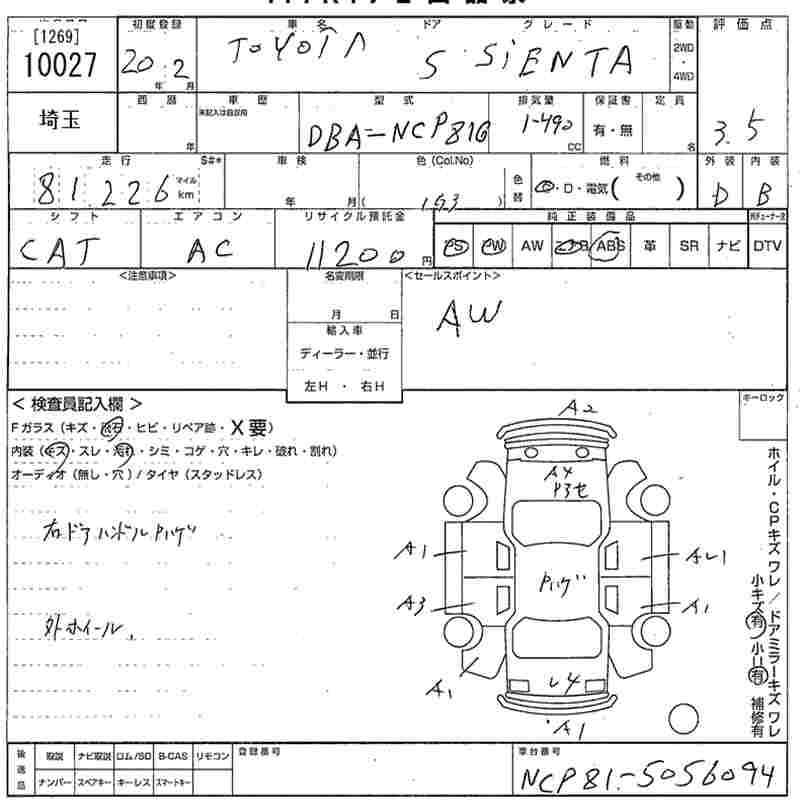 [1269]
10027
埼玉
初度登録
20 年 2 月
車名
TOYOTA
ドア
5
グレード
SIENTA
駆動
2WD
・
4WD
評価点
3.5
西暦
年
車歴
未記入は自家用
型式
DBA-NCP81G
排気量
1-490
CC
保証書
有・無
定員
名
走行
$#*
81,226
マイル
km
車検
年 月
色 (Col.No)
( 193 )
色替
燃料
G・D・電気 ( その他 )
外装
D
内装
B
シフト
CAT
エアコン
AC
リサイクル預託金
11200 円
純正装備品
PS PW AW ABS 革 SR ナビ DTV
<注意事項>
名変期限
月 日
輸入車
ディーラー・並行
左H ・ 右H
<セールスポイント>
AW
キーロック
< 検査員記入欄 >
Fガラス (キズ・飛石・ヒビ・リペア跡・X要)
内装 (キズ・スレ・汚れ・シミ・コゲ・穴・キレ・破れ・割れ)
オーディオ (無し・穴) / タイヤ (スタッドレス)
右ドアハンドルPハゲ
外ホイール
A2
A4
P3セ
A1
AU1
Pハゲ
A3
A1
A1
U4
A1
ホイル・CPキズ ワレ / ドアミラーキズ ワレ
小キズ 有 / 小U 有 補修有
後送品
取説 ナビ取説 ロム/SD B-CAS リモコン
ナンバー スペアキー キーレス スマートキー
登録番号
車台番号
NCP81-5056094